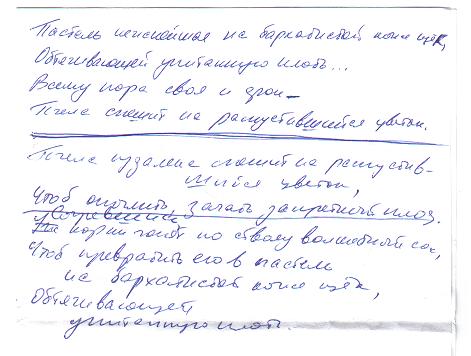 Пастель нежнейшая на бархатистой коже щёк,
Обтягивающей упитанную плоть...
Всему пора своя и срок –
Пчела спешит на распустившийся цветок.
Пчела издалека спешит на распустив-
шийся цветок,
Чтоб опылить, зачать запретный плод.
Корни гонят по стволу волшебный сок,
Чтоб превратить его в пастель
на бархатистой коже щёк,
Обтягивающей
упитанную плоть.